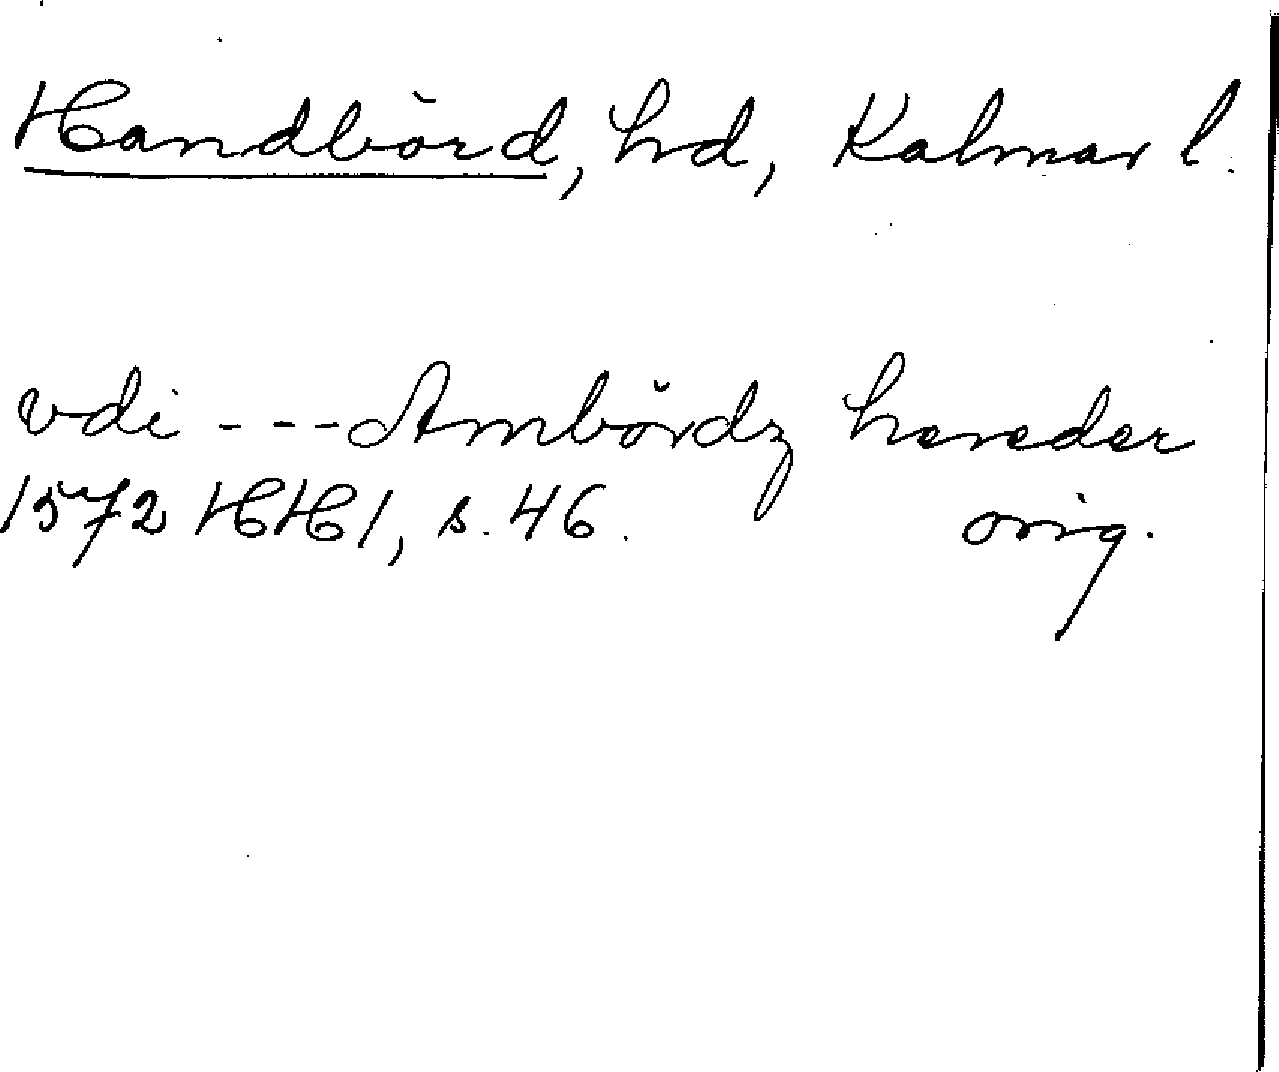 Handbörd, hd, Kalmar l.
vdi --- Ambördz hereder
1572 HH 1, s. 46. orig.